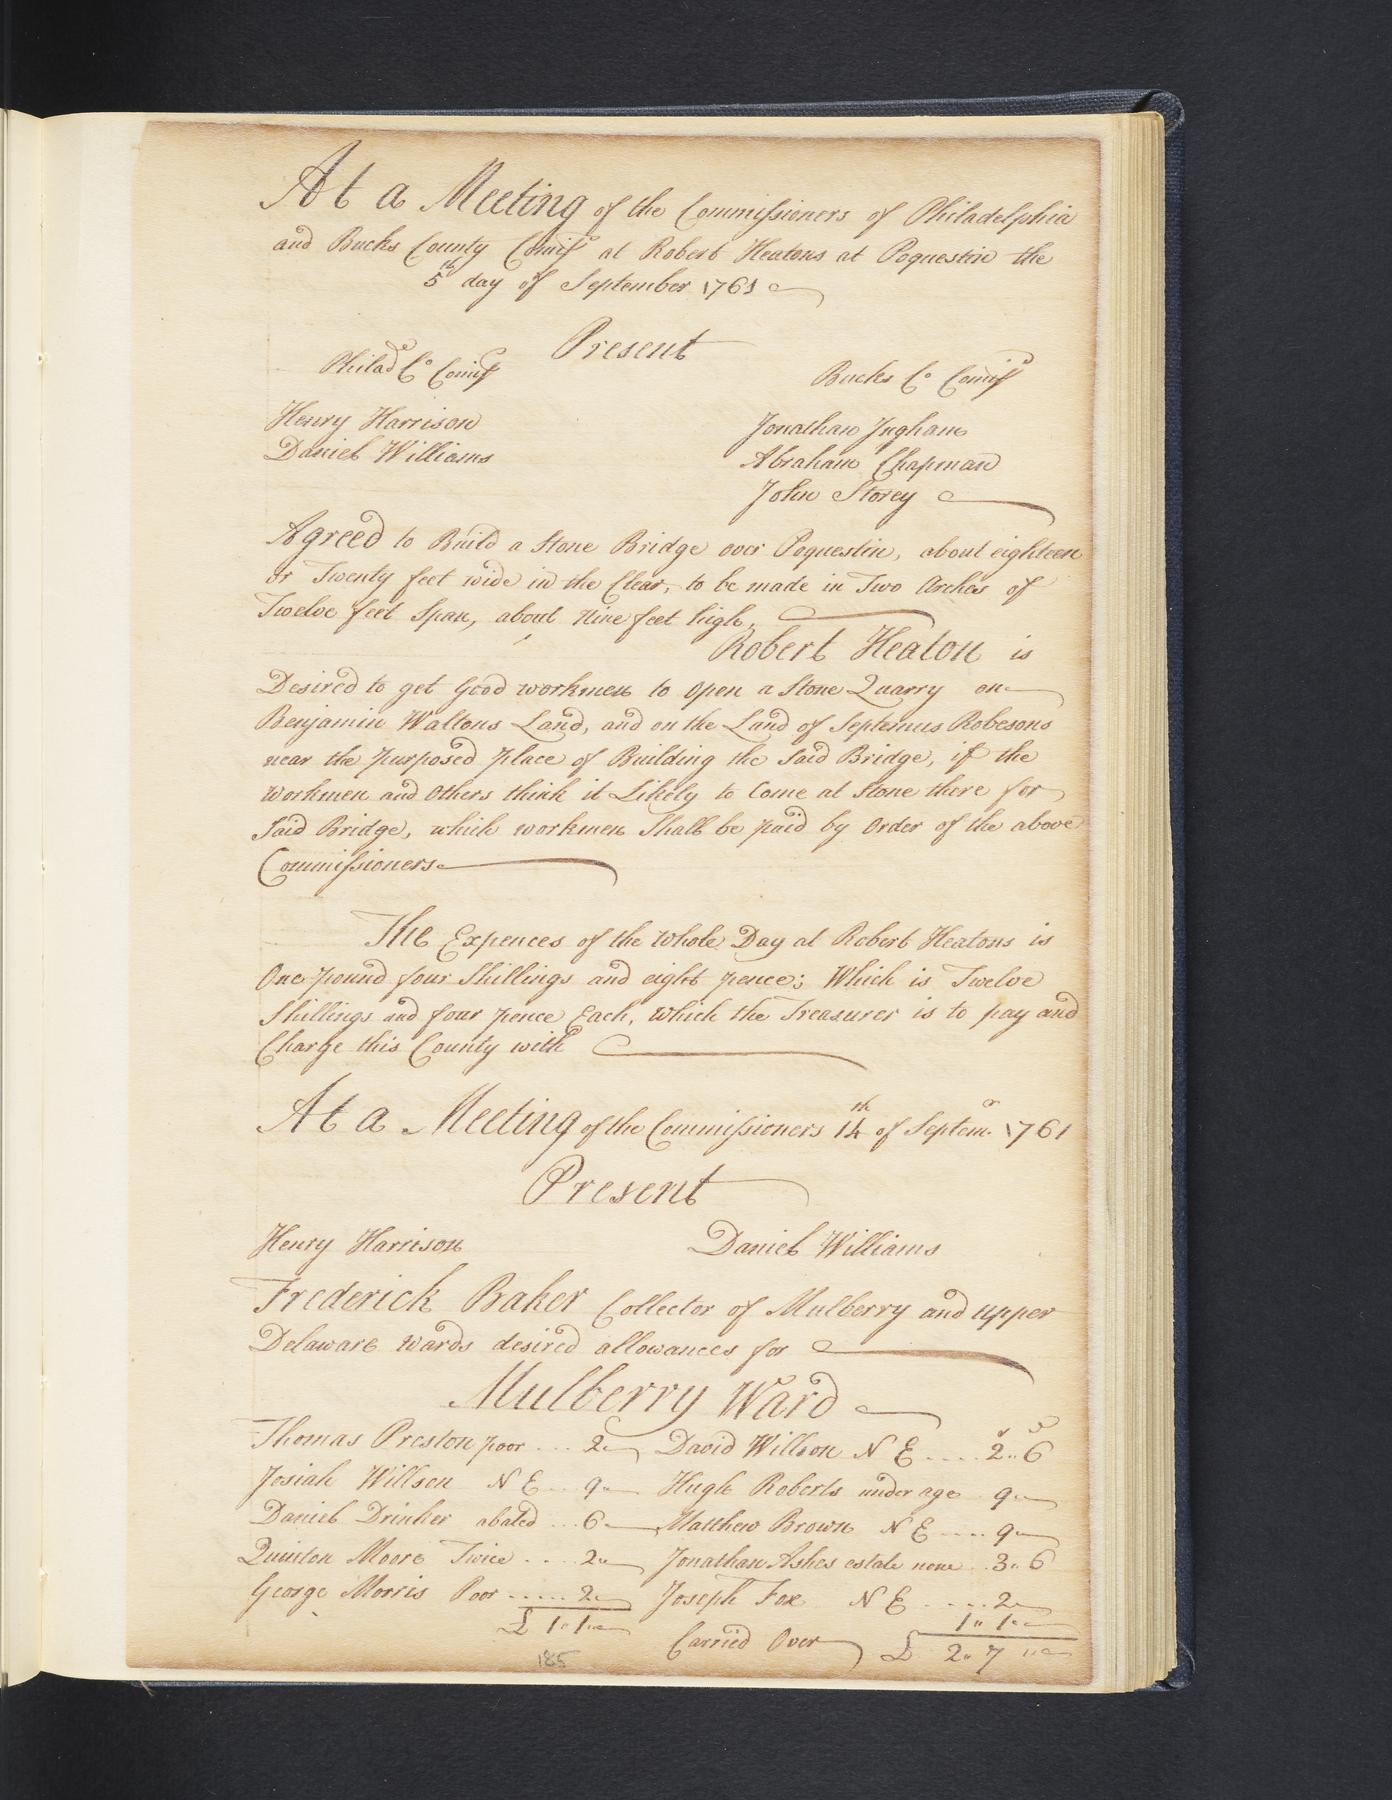 At a Meeting of the Commissioners of Philadelphia
and Bucks County Comis.rs at Robert Heatons at Poquestin the
5th day of September 1761
Present
Philad.a Co Comis.rs
Bucks Co Comis.rs
Henry Harrison
Jonathan Ingham
Daniel Williams
Abraham Chapman
John Storey
Agreed to Build a Stone Bridge over Poquestin, about eighteen
or Twenty feet wide in the Clear, to be made in Two Arches of
Twelve feet Span, about Nine feet high,
Robert Heaton is
Desired to get Good workmen to open a Stone Quarry on
Benjamin Waltons Land, and on the Land of Septemus Robesons
near the purposed place of Building the Said Bridge, if the
Workmen and Others think it Likely to Come at Stone there for
Said Bridge, which workmen Shall be paid by Order of the above
Commissioners
The Expences of the Whole Day at Robert Heatons is
One pound four Shillings and eight pence; Which is Twelve
Shillings and four pence Each, Which the Treasurer is to pay and
Charge this County with
At a Meeting of the Commissioners 14th of Septem.r 1761
Present
Henry Harrison Daniel Williams
Frederick Baker Collector of Mulberry and upper
Delaware Wards desired allowances for
Mulberry Ward
Thomas Preston poor .... 2 David Willson N E ..... 2..6
Josiah Willson N E ... 9 Hugh Roberts under age .. 9
Daniel Drinker abated ... 6 Matthew Brown N E ..... 9
Quinton Moore Twice .... 2 Jonathan Ashes estate none .. 3..6
George Morris Poor ...... 2 Joseph Fox N E ..... 2
£ 1..1.. 1..1..
Carried Over £ 2..7..
185